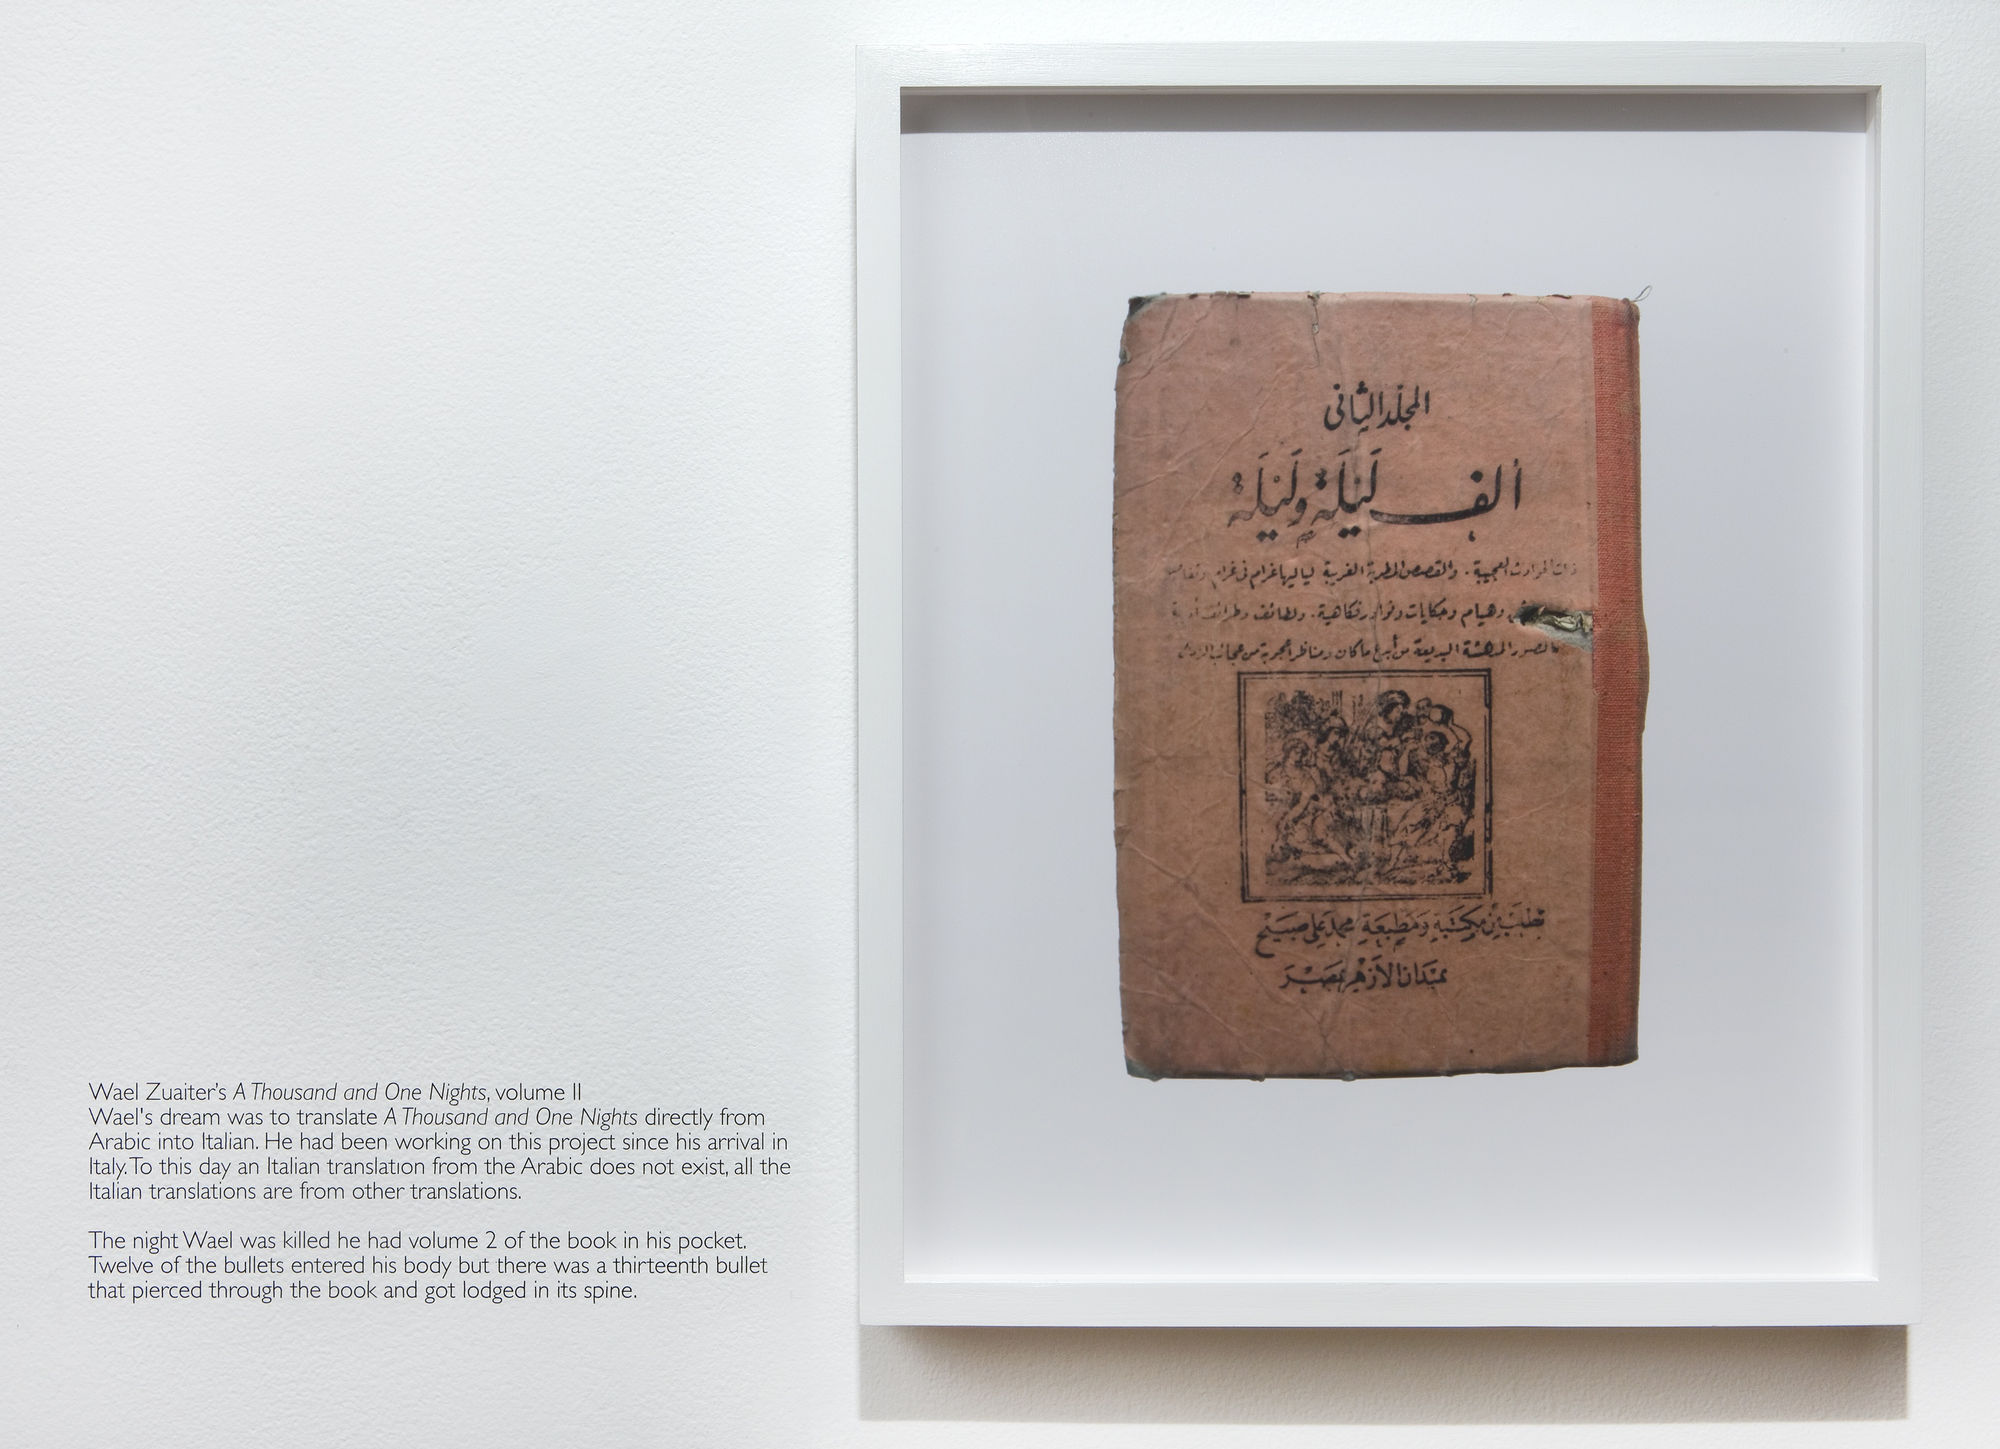 Wael Zuaiter's A Thousand and One Nights, volume II
Wael's dream was to translate A Thousand and One Nights directly from
Arabic into Italian. He had been working on this project since his arrival in
Italy. To this day an Italian translation from the Arabic does not exist, all the
Italian translations are from other translations.
The night Wael was killed he had volume 2 of the book in his pocket.
Twelve of the bullets entered his body but there was a thirteenth bullet
that pierced through the book and got lodged in its spine.
المجلد الثانى
ألف لَيْلَة وَلَيْلَة
العجيبة . والقصص المطربة الغريبة لياليها غرام فى غرام
وهيام وحكايات ونوادر فكاهية . ولطائف وطرائف
المدهشة البديعة من أبدع ما كان ومناظر أعجوبة من عجائب
تطلب من مكتبة ومطبعة محمد على صبيح
بميدان الأزهر بمصر